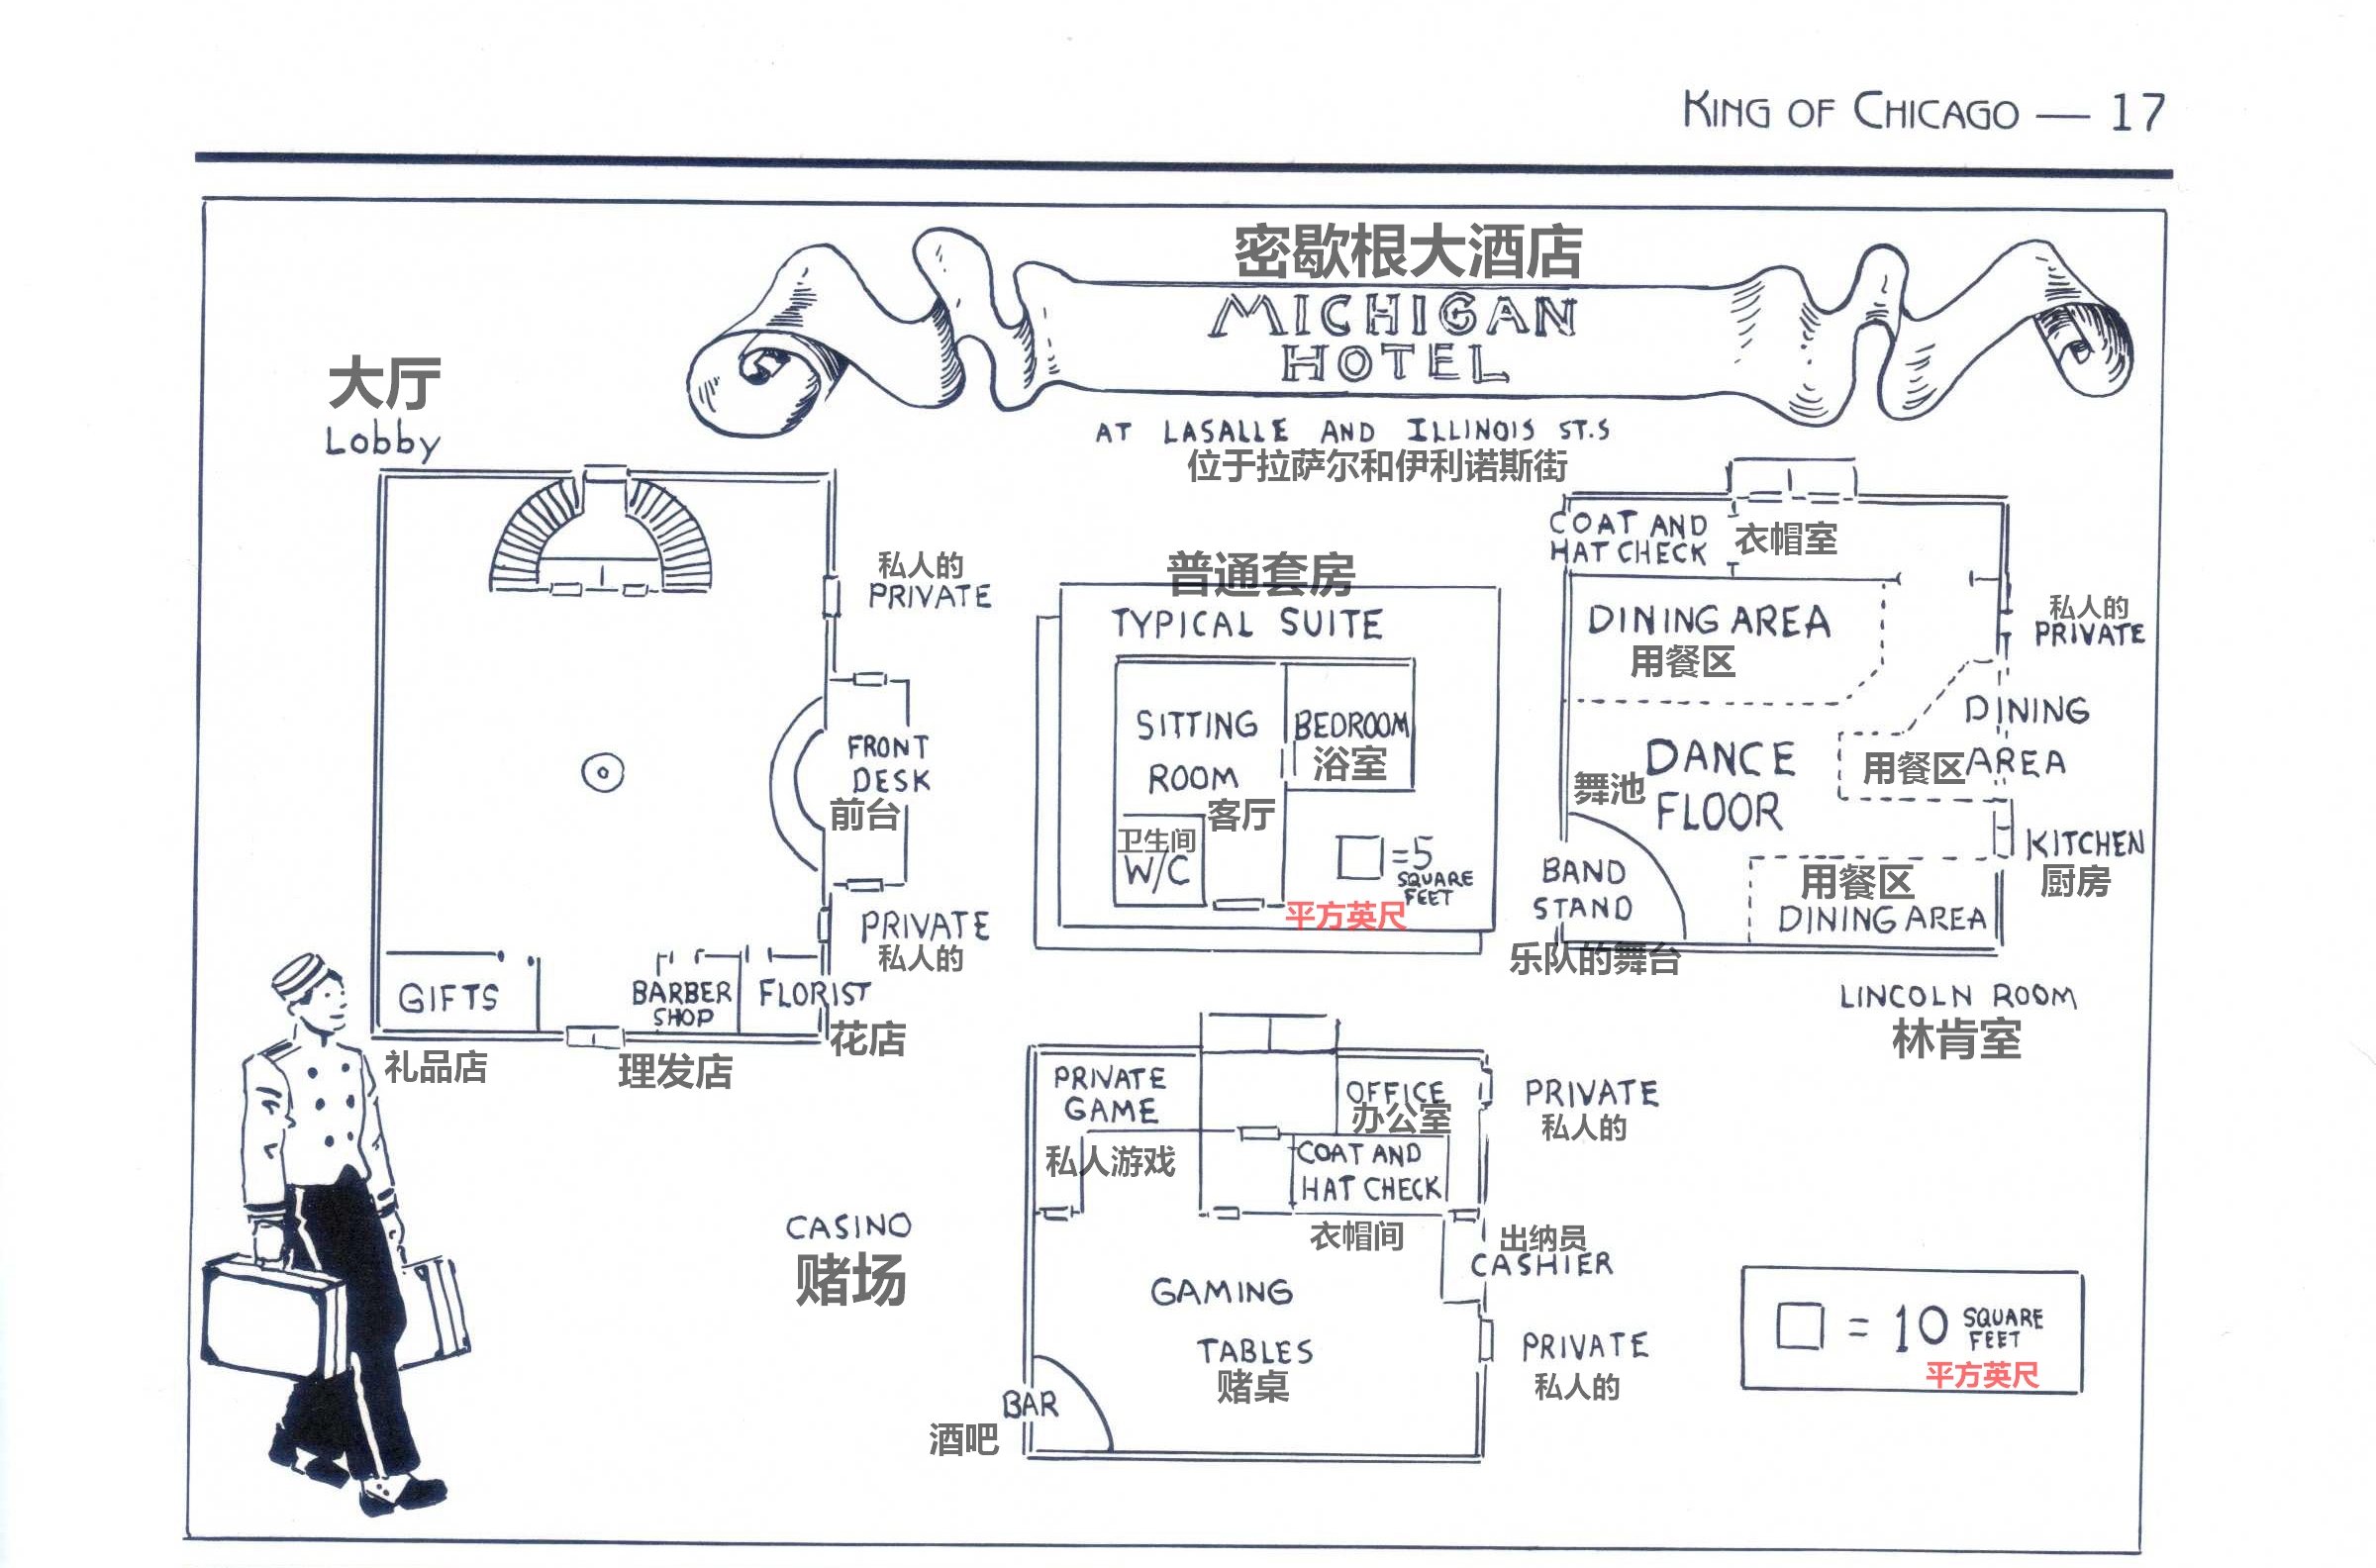 KING OF CHICAGO — 17
密歇根大酒店
MICHIGAN
HOTEL
AT LASALLE AND ILLINOIS ST.S
位于拉萨尔和伊利诺斯街
大厅
Lobby
私人的
PRIVATE
FRONT
DESK
前台
PRIVATE
私人的
GIFTS
礼品店
BARBER
SHOP
理发店
FLORIST
花店
普通套房
TYPICAL SUITE
SITTING
ROOM
客厅
BEDROOM
浴室
卫生间
W/C
=5
SQUARE
FEET
平方英尺
COAT AND
HAT CHECK
衣帽室
DINING AREA
用餐区
私人的
PRIVATE
DINING
AREA
用餐区
DANCE
FLOOR
舞池
KITCHEN
厨房
BAND
STAND
乐队的舞台
用餐区
DINING AREA
LINCOLN ROOM
林肯室
CASINO
赌场
PRIVATE
GAME
私人游戏
OFFICE
办公室
COAT AND
HAT CHECK
衣帽间
PRIVATE
私人的
出纳员
CASHIER
GAMING
TABLES
赌桌
PRIVATE
私人的
BAR
酒吧
= 10 SQUARE
FEET
平方英尺